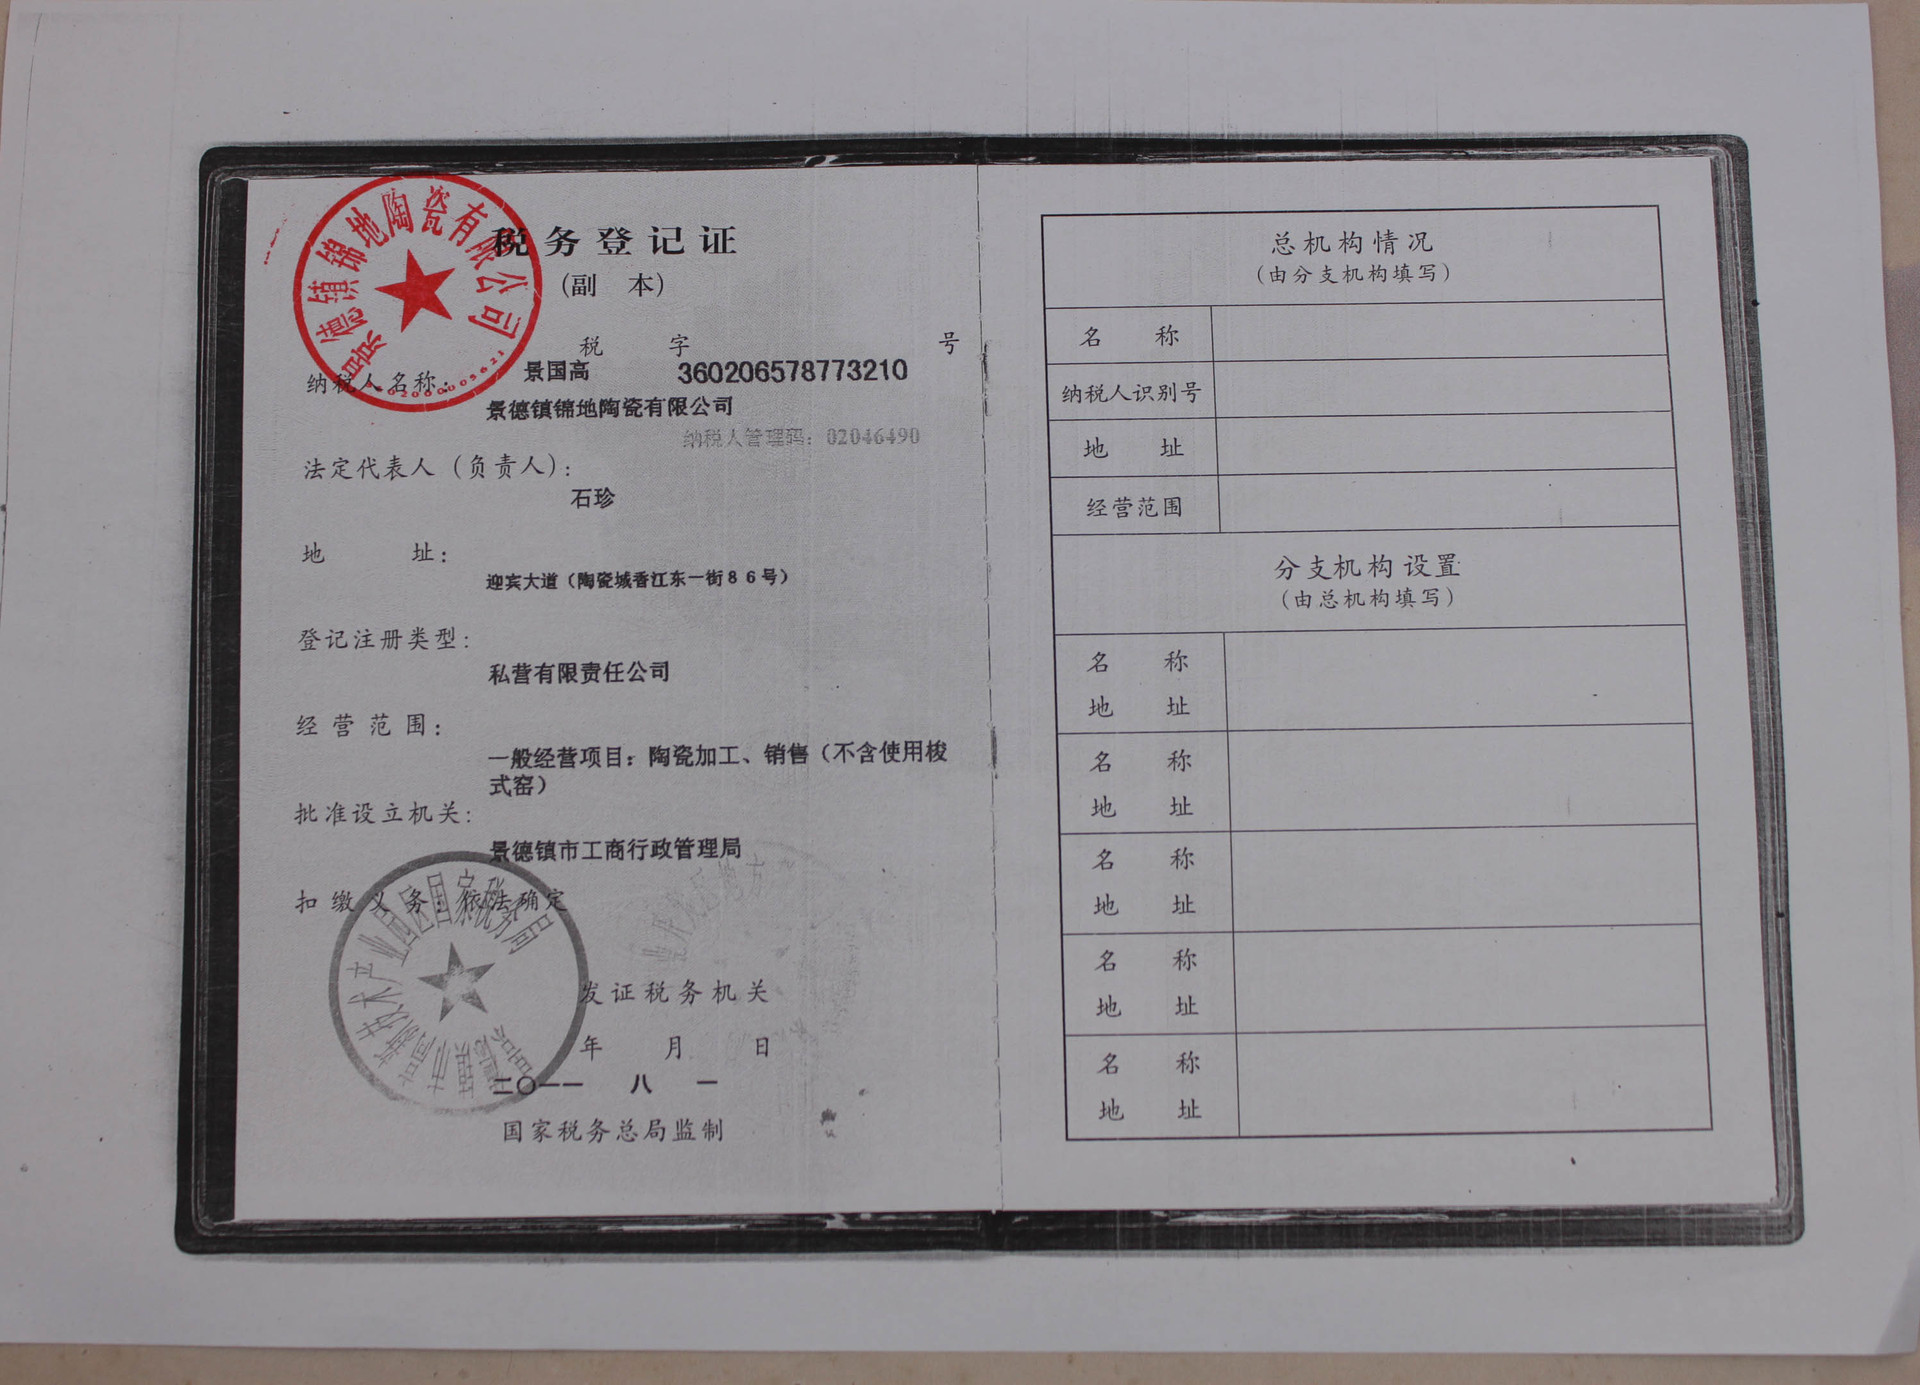 税务登记证
(副 本)
税 字 号
景国高 360206578773210
纳税人名称:
景德镇锦地陶瓷有限公司
纳税人管理码: 02046490
法定代表人(负责人):
石珍
地 址:
迎宾大道(陶瓷城香江东一街86号)
登记注册类型:
私营有限责任公司
经营范围:
一般经营项目: 陶瓷加工、销售(不含使用梭
式窑)
批准设立机关:
景德镇市工商行政管理局
扣缴义务: 依法确定
发证税务机关
年 月 日
二〇一一 八 一
国家税务总局监制
景德镇锦地陶瓷有限公司
景德镇市高新技术产业园区国家税务局
总机构情况
(由分支机构填写)
名 称
纳税人识别号
地 址
经营范围
分支机构设置
(由总机构填写)
名 称
地 址
名 称
地 址
名 称
地 址
名 称
地 址
名 称
地 址